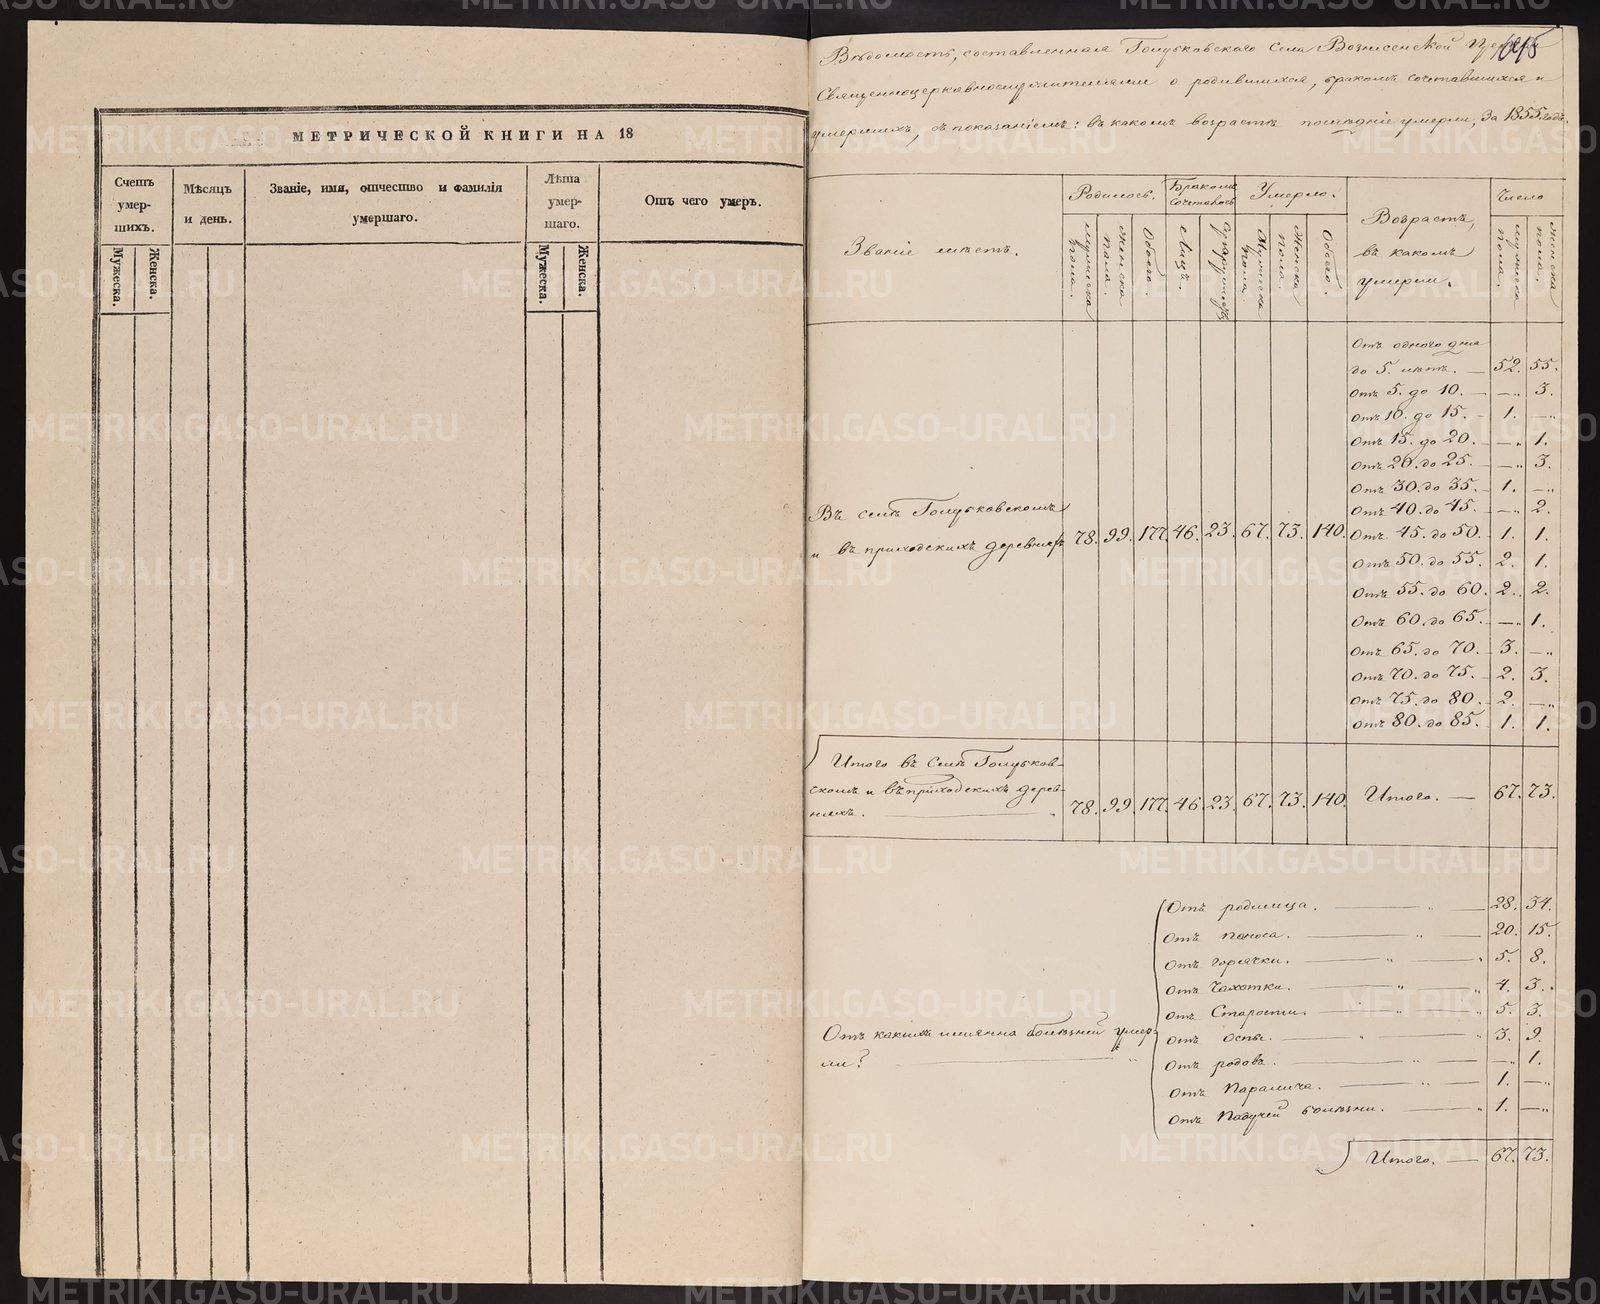 МЕТРИЧЕСКОЙ КНИГИ НА 18
Счетъ умер-шихъ.
Мужеска.
Женска.
Мѣсяцъ и день.
Званіе, имя, отчество и фамилія умершаго.
Лѣта умер-шаго.
Мужеска.
Женска.
Отъ чего умеръ.
Вѣдомость, составленная Голубковскаго Села Вознесенской Церкви
Священноцерковнослужителями о родившихся, бракомъ сочетавшихся и
умершихъ, съ показаніемъ: въ какомъ возрастѣ послѣдніе умерли, за 1855 годъ.
Званіе мѣстъ.
Родилось.
Мужеска пола.
Женска пола.
Обоего.
Бракомъ Сочеталось
Лицъ.
Супружествъ
Умерло.
Мужеска пола.
Женска пола.
Обоего.
Возрастъ, въ какомъ умерли.
Число
мужеска пола.
женска пола.
Отъ одного дня
до 5. лѣтъ. — 52. 55.
Отъ 5. до 10. — — „ 3.
Отъ 10. до 15. — 1. — „
Отъ 15. до 20. — — „ 1.
Отъ 20. до 25. — — „ 3.
Отъ 30. до 35. — 1. — „
Отъ 40. до 45. — — „ 2.
Въ селѣ Голубковскомъ
и въ приходскихъ деревняхъ 78. 99. 177. 46. 23. 67. 73. 140.
Отъ 45. до 50. — 1. 1.
Отъ 50. до 55. 2. 1.
Отъ 55. до 60. 2. 2.
Отъ 60. до 65. — „ 1.
Отъ 65. до 70. — 3. — „
Отъ 70. до 75. — 2. 3.
Отъ 75. до 80. — 2. — „
Отъ 80. до 85. — 1. 1.
Итого въ Селѣ Голубков-
скомъ и въ приходскихъ дерев-
няхъ. — „ 78. 99. 177. 46. 23. 67. 73. 140. Итого. — 67. 73.
Отъ какихъ именно болѣзней умер-
ли? — „
Отъ родимца. — „ — 28. 34.
Отъ поноса. — „ — 20. 15.
Отъ горячки. — „ — „ 5. 8.
Отъ Чахотки. — „ — „ 4. 3.
Отъ Старости. — „ — „ 5. 3.
Отъ Оспы. — „ — „ 3. 9.
Отъ родовъ. — „ — — „ 1.
Отъ Паралича. — „ — 1. — „
Отъ Падучей болѣзни. — „ 1. — „
Итого. — 67. 73.
METRIKI.GASO-URAL.RU